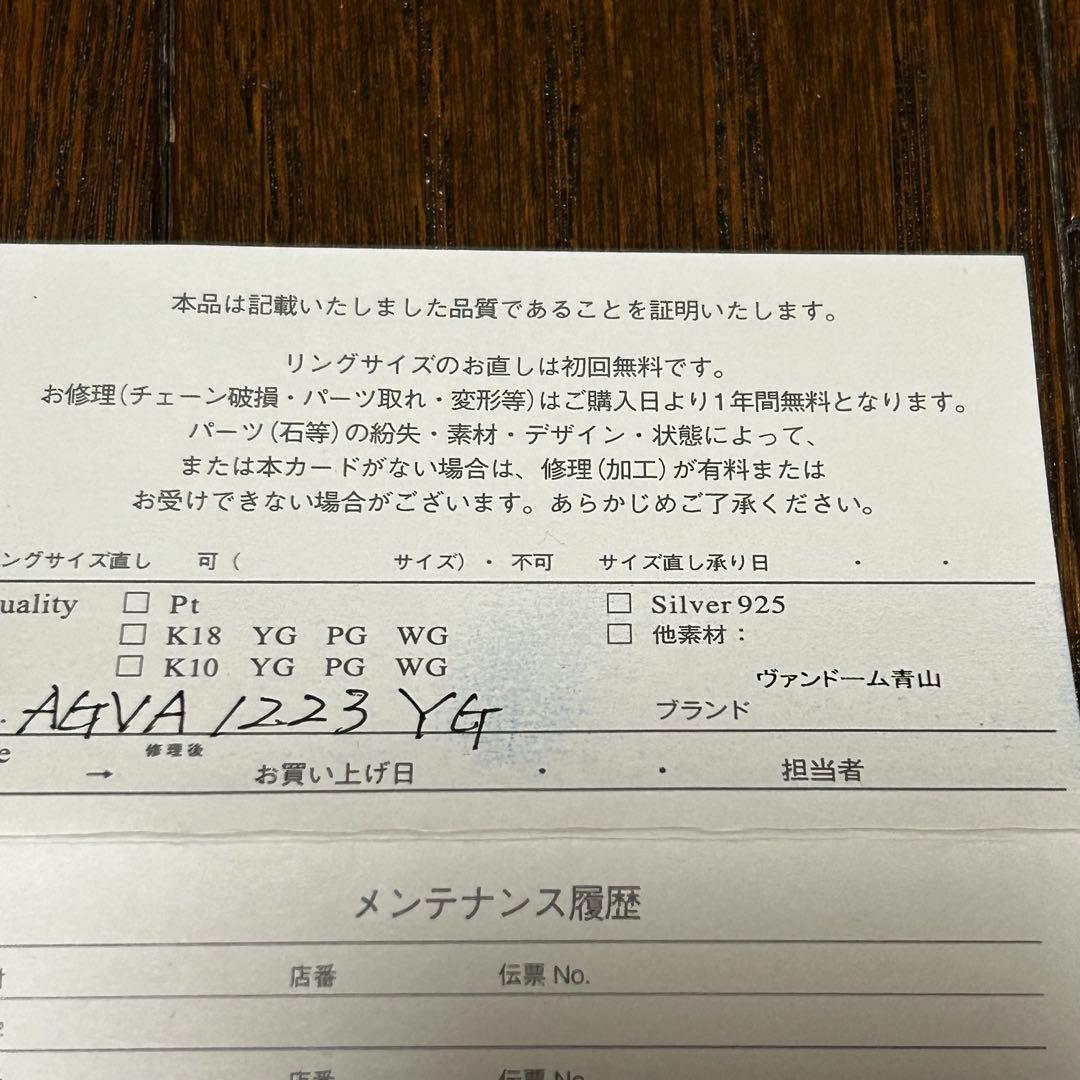 本品は記載いたしました品質であることを証明いたします。
リングサイズのお直しは初回無料です。
お修理(チェーン破損・パーツ取れ・変形等)はご購入日より1年間無料となります。
パーツ(石等)の紛失・素材・デザイン・状態によって、
または本カードがない場合は、修理(加工)が有料または
お受けできない場合がございます。あらかじめご了承ください。
ングサイズ直し 可( サイズ)・不可 サイズ直し承り日 ・ ・
uality □ Pt □ Silver 925
□ K18 YG PG WG □ 他素材:
□ K10 YG PG WG
ヴァンドーム青山
. AGVA 1223 YG ブランド
e → 修理後 お買い上げ日 ・ ・ 担当者
メンテナンス履歴
店番 伝票 No.
店番 伝票 No.